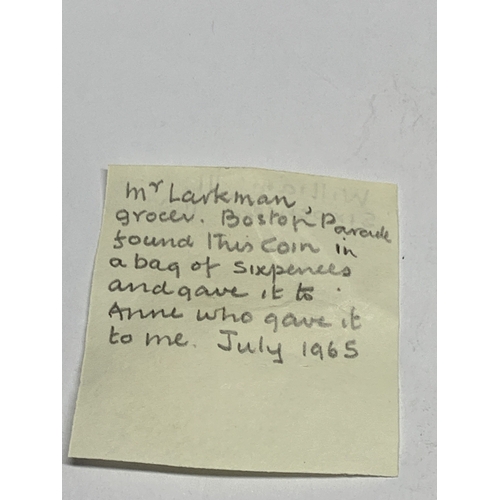 Mr Larkman,
grocer. Boston Parade
found this coin in
a bag of sixpences
and gave it to
Anne who gave it
to me. July 1965